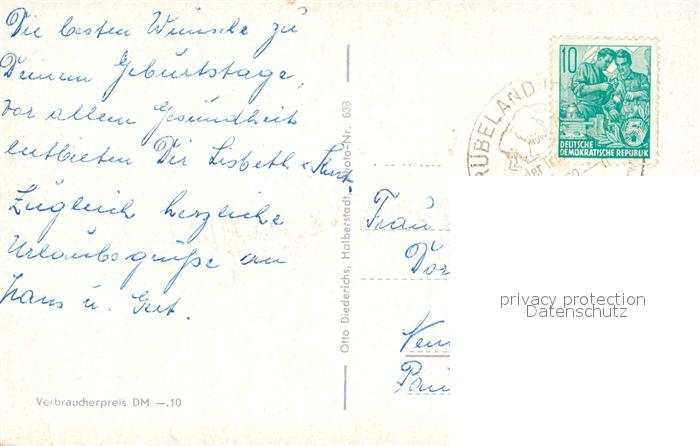 Die besten Wünsche zu
Deinem Geburtstage,
vor allem Gesundheit
entbieten Dir Lisbeth u. Kurt.
Zugleich herzliche
Urlaubsgrüße an
Hans u.
Verbraucherpreis DM —.10
Otto Diederichs, Halberstadt, Photo-Nr. 638
Frau
10
DEUTSCHE
DEMOKRATISCHE REPUBLIK
RÜBELAND
privacy protection
Datenschutz